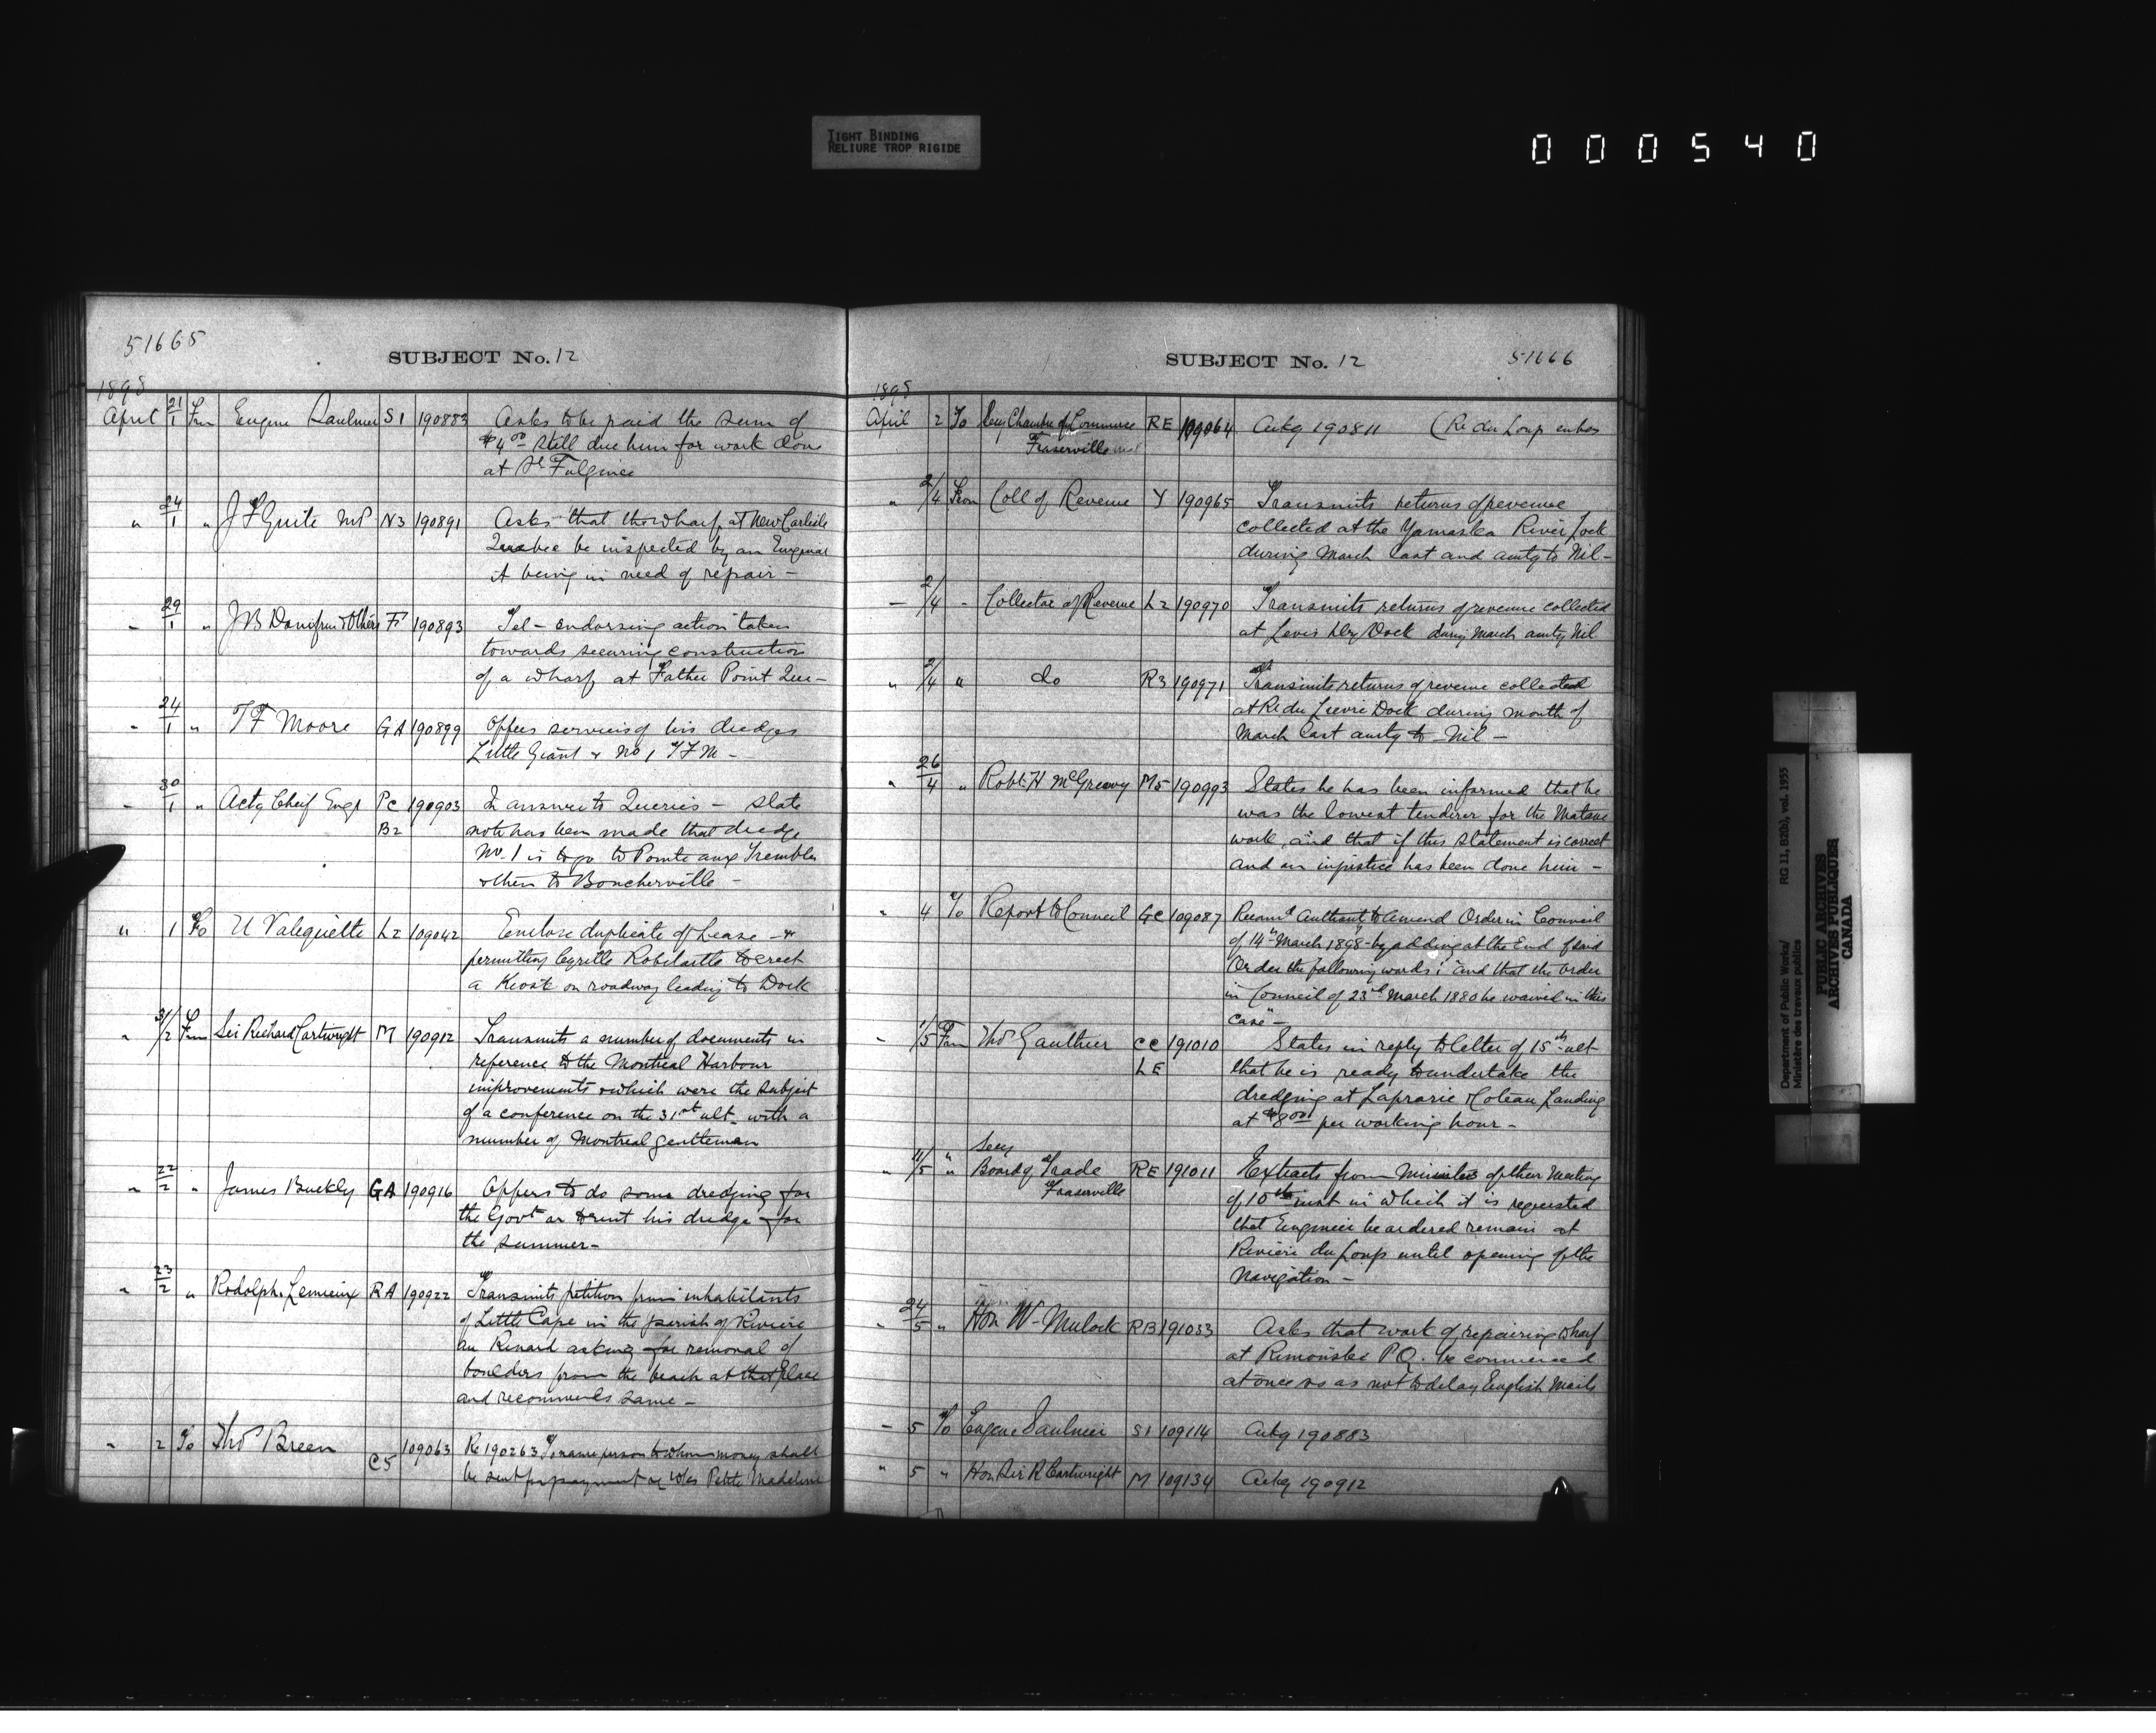 TIGHT BINDING
RELIURE TROP RIGIDE
000540
51665
SUBJECT No. 12
1898
April 21/1 Frm Eugene Saulnier S1 190883 Asks to be paid the sum of
$4.00 still due him for work done
at St Fulgence
" 24/1 " J F Guite MP N3 190891 Asks that the wharf at New Carlisle
Quebec be inspected by an Engineer
it being in need of repair -
" 29/1 " J B & Others F 190893 Tel - endorsing action taken
towards securing construction
of a wharf at Father Point Que -
" 24/1 " T F Moore GA 190899 Offers services of his dredges
Little Giant & No 1 T F M -
" 30/1 " Actg Cheif Engr PC 190903 In answer to Queries - state
B2 note has been made that dredge
No. 1 is to go to Pointe aux Trembles
& then to Boucherville -
" 1 To U Valiquette L2 109042 Enclose duplicate of Lease - &
permitting Cyrille Robitaille to erect
a Kiosk on roadway leading to Dock
" 31/2 From Sir Richard Cartwright M 190912 Transmits a number of documents in
reference to the Montreal Harbour
improvements & which were the subject
of a conference on the 31st ult. with a
number of Montreal gentleman
" 22/2 " James Buckly GA 190916 Offers to do some dredging for
the Govt or to rent his dredge for
the summer -
" 23/2 " Rodolphe Lemieux RA 190922 Transmits petition from inhabitants
of Little Cape in the parish of Riviere
au Renard asking for removal of
boulders from the beach at that place
and recommends same -
" 2 To Thos Breen 109063 Re 190263 To name person to whom money shall
C5 be sent for payment Petite Madeleine
SUBJECT No. 12
51666
1898
April 2 To Secy Chambre of Commerce RE 109064 Ackg 190811 (Re du Loup
Fraserville
" 2/4 From Coll of Revenue Y 190965 Transmits returns of revenue
collected at the Yamaska River Lock
during March last and amtg to Nil -
- 2/4 - Collector of Revenue L2 190970 Transmits returns of revenue collected
at Levis Dry Dock during March amtg Nil
" 2/4 " do R3 190971 Transmits returns of revenue collected
at Re du Lievre Dock during month of
March last amtg to Nil -
" 26/4 " Robt. H McGreevy M5 190993 States he has been informed that he
was the lowest tenderer for the Matane
work, and that if this statement is correct
and an injustice has been done him -
" 4 To Report to Council GC 109087 Recomd Authant to amend Order in Council
of 14th March 1898 - by adding at the End of said
Order the following words: "and that the Order
in Council of 23rd March 1880 be waived in this
case" -
- 1/5 From Thos Gauthier CC 191010 States in reply to letter of 15th ult
LE that he is ready to undertake the
dredging at Laprarie & Coteau Landing
at $8.00 per working hour -
Secy
" 11/5 " Board of Trade RE 191011 Extracts from Minutes of their Meeting
Fraserville of 10th inst in which it is requested
that Engineer be ordered remain at
Riviere du Loup until opening of the
Navigation -
" 24/5 " Hon W - Mulock RB 191033 Asks that work of repairing wharf
at Rimouski PQ. be commenced
at once so as not to delay English Mails
- 5 To Eugene Saulnier S1 109114 Ackg 190883
" 5 " Hon Sir R Cartwright M 109134 Ackg 190912
Department of Public Works/
Ministère des travaux publics
RG 11, B2(b), vol. 1955
PUBLIC ARCHIVES
ARCHIVES PUBLIQUES
CANADA